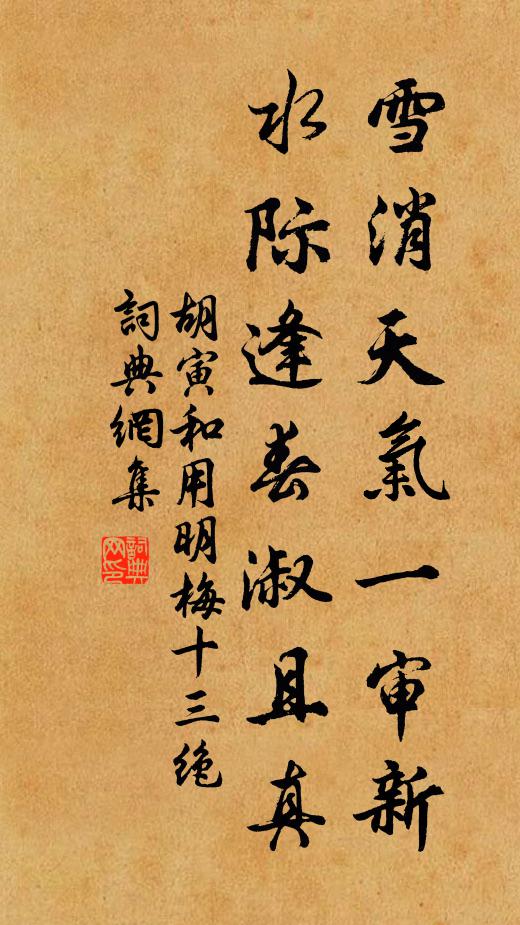 雪消天氣一审新
水际逢春淑且真
胡寅和用明梅十三绝
詞典網集
詞典網印